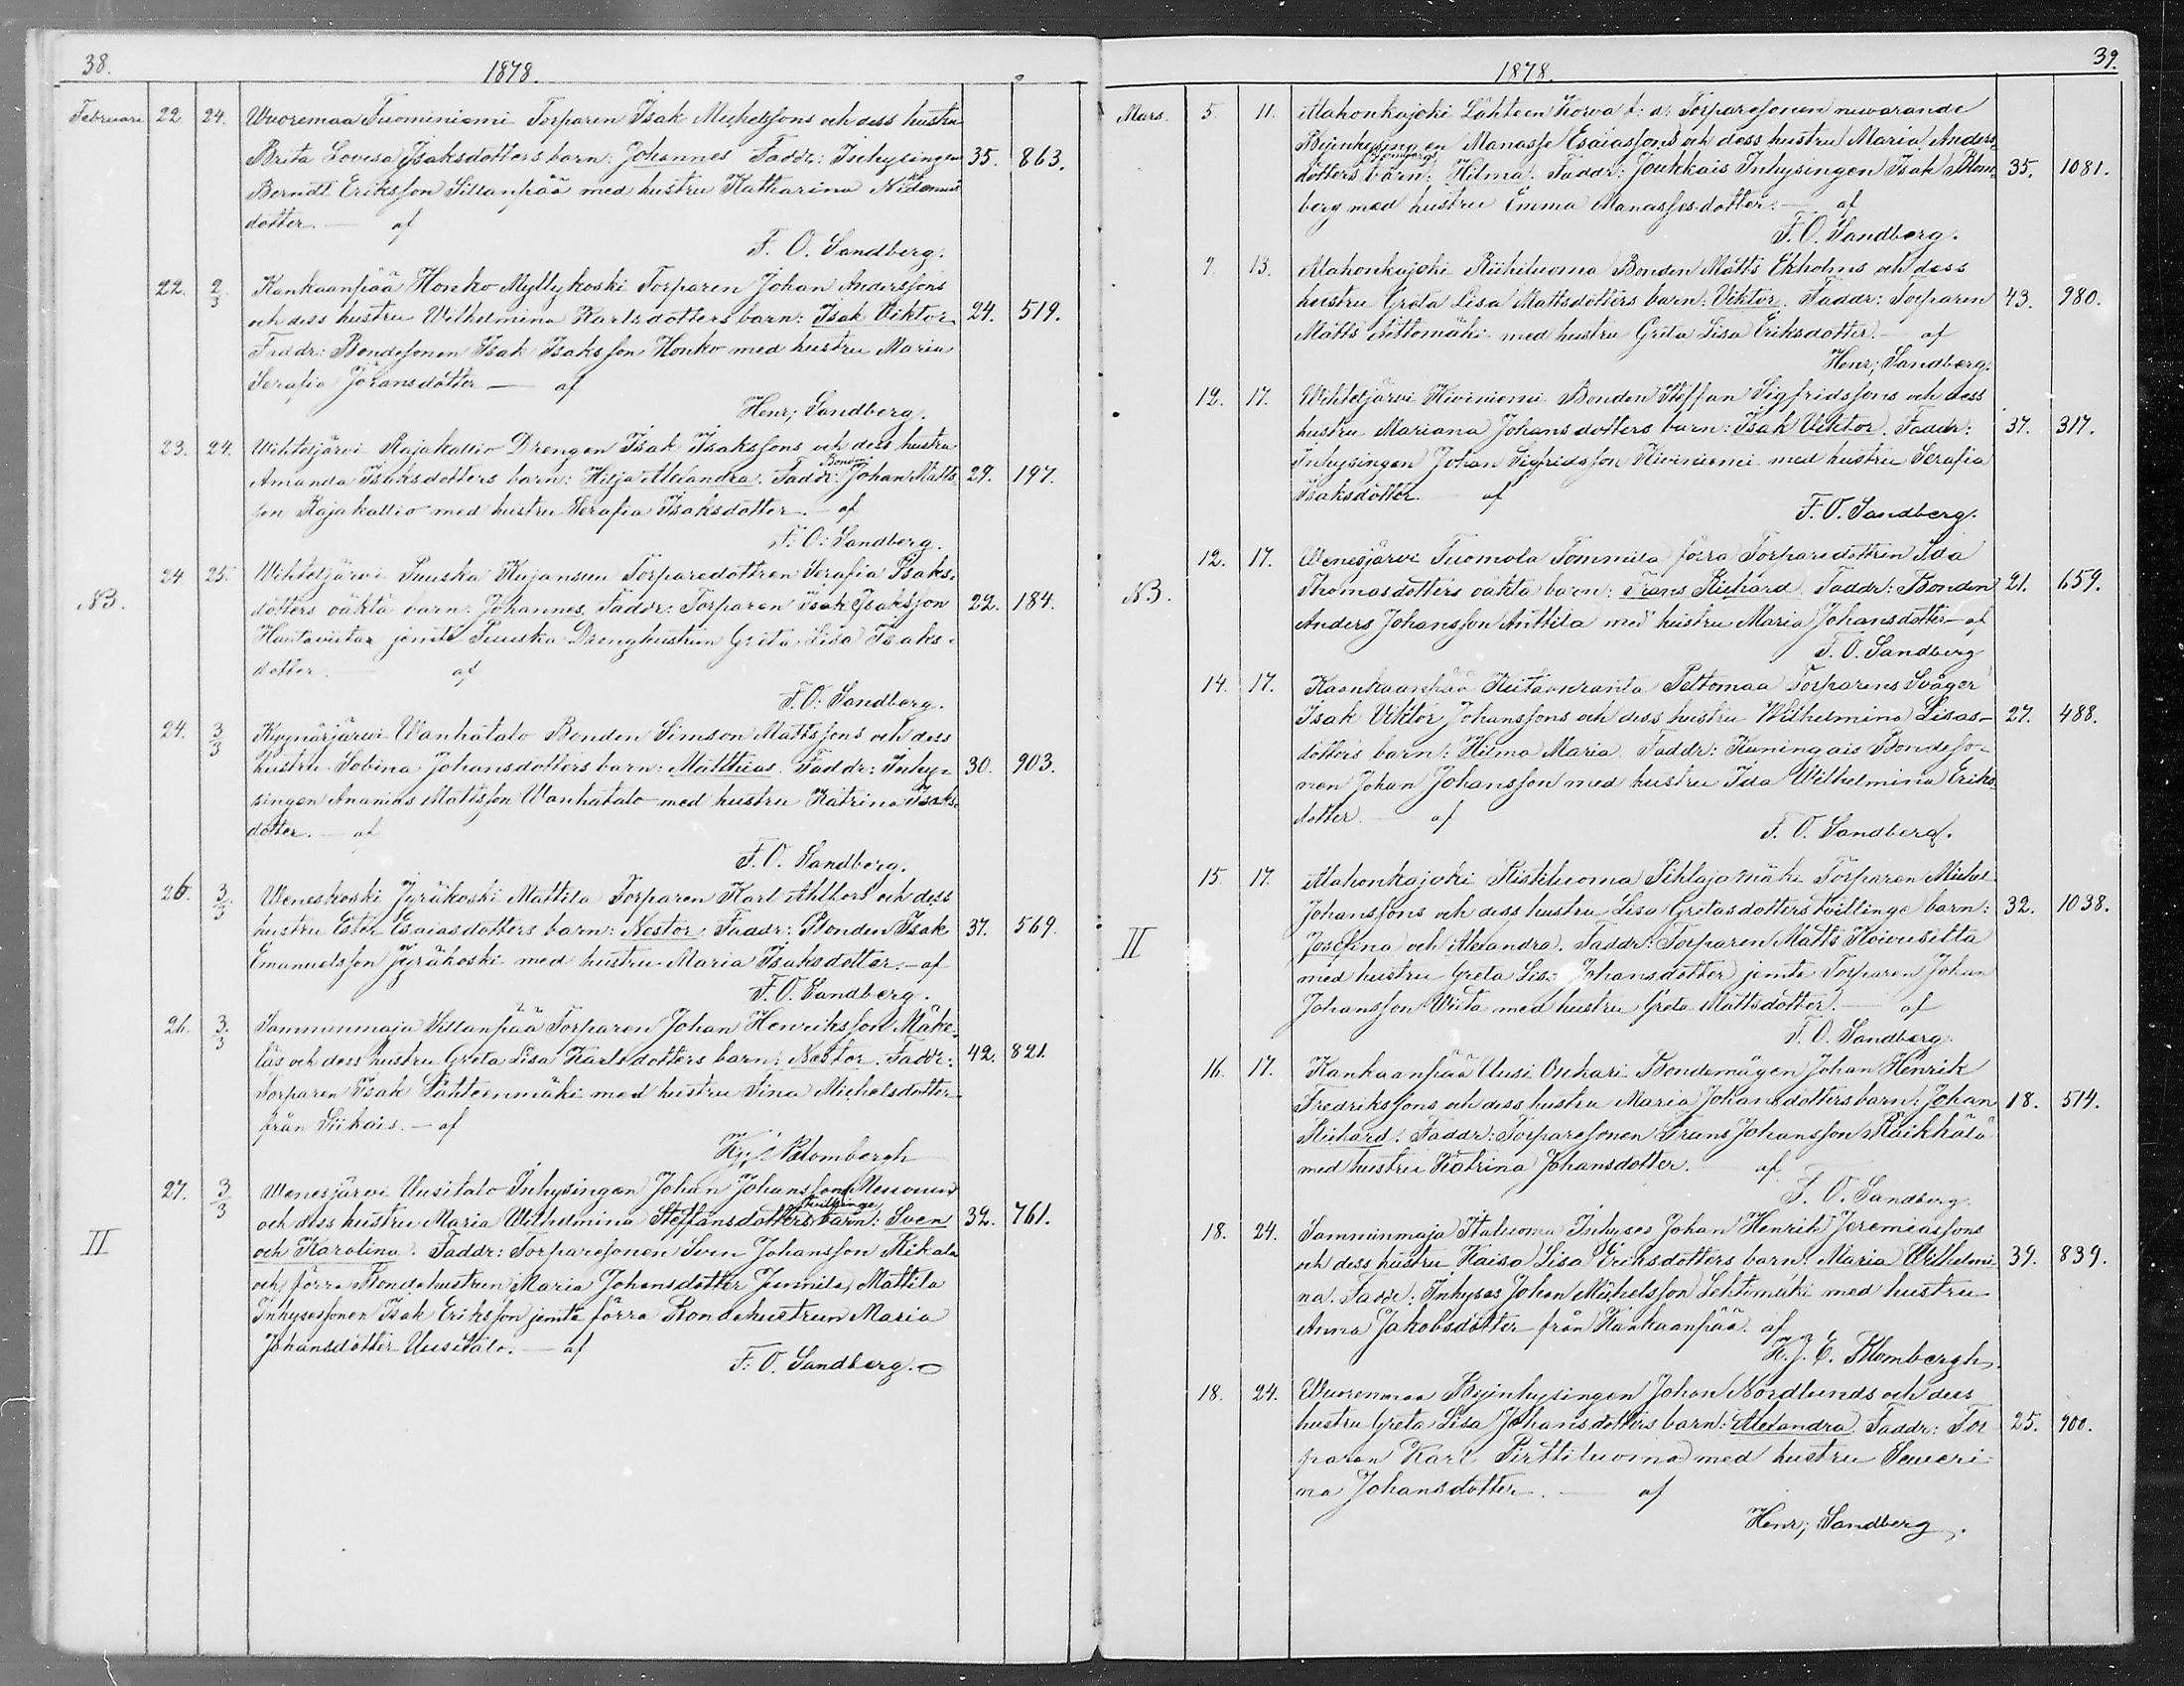 38.
1878.
Februari 22. 24. Wuoremaa Tuominiemi Torparen Isak Michelssons och dess hustru
Brita Lovisa Isaksdotters barn: Johannes Faddr: Inhysingen 35. 863.
Berndt Eriksson Sillanpää med hustru Katharina
dotter. — af
F. O. Sandberg.
22. 2/3 Kankaanpää Honko Myllykoski Torparen Johan Anderssons
och dess hustru Wilhelmina Karlsdotters barn: Isak Viktor 24. 519.
Faddr: Bondesonen Isak Isaksson Honko med hustru Maria
Serafia Johansdotter — af
Henr; Sandberg.
23. 24. Wihteljärvi Rajakallio Drengen Isak Isakssons och dess hustru
Bonden
Amanda Isaksdotters barn: Hilja Alexandra. Faddr: Johan Matts- 29. 197.
son Rajakallio med hustru Serafia Isaksdotter. — af
F: O: Sandberg.
24. 25. Wihteljärvi Puuska Kujansuu Torparedottren Serafia Isaks-
NB. dotters oäkta barn: Johannes, Faddr: Torparen Isak Isaksson 22. 184.
jemte Puuska Drenghustrun Greta Lisa Isaks-
dotter. — af
F. O: Sandberg.
24. 3/3 Kyynärjärvi Wanhatalo Bonden Simson Mattssons och dess
hustru Sabina Johansdotters barn: Matthias. Faddr: Inhy- 30. 903.
singen Ananias Mattsson Wanhatalo med hustru Katrina Isaks-
dotter. — af
F. O. Sandberg.
26. 3/3 Weneskoski Jyräkoski Mattila Torparen Karl Ahlfors och dess
hustru Ester Esaiasdotters barn: Nestor. Faddr: Bonden Isak 37. 569.
Emanuelsson Jyräkoski med hustru Maria Isaksdotter. — af
F. O. Sandberg.
26. 3/3 Samminmaja Sillanpää Torparen Johan Henriksson Mäke-
läs och dess hustru Greta Lisa Karlsdotters barn: Nestor. Faddr: 42. 821.
Torparen Isak Lähteenmäki med hustru Sina Michelsdotter
från Siikais. — af
Blombergh
27. 3/3 Wenesjärvi Uusitalo Inhysingen Johan Johansson
tvillinge
och dess hustru Maria Wilhelmina Steffansdotters barn: Sven 32. 761.
II och Karolina. Faddr: Torparesonen Sven Johansson Mikala
och förra Bondehustrun Maria Johansdotter Junnila, Mattila
Inhysessonen Isak Eriksson jemte förra Bondehustrun Maria
Johansdotter Uusitalo. — af
F. O. Sandberg.
39.
1878.
Mars. 5. 11. Alahonkajoki Lähteen Korva f: d: Torparesonen nuvarande
Byinhysingen Manasse Esaiassons och dess hustru Maria Anders-
dotters barn: Hilma. Faddr: Joukkais Inhysingen Isak Blom- 35. 1081.
berg med hustru Emma Manassesdotter. — af
F. O. Sandberg.
7. 13. Alahonkajoki Riihiluoma Bonden Matts Ekholms och dess
hustru Greta Lisa Mattsdotters barn: Viktor. Faddr: Torparen 43. 980.
Matts med hustru Greta Lisa Eriksdotter. — af
Henr; Sandberg.
12. 17. Wihteljärvi Kiviniemi Bonden Steffan Sigfridssons och dess
hustru Mariana Johansdotters barn: Isak Viktor. Faddr: 37. 317.
Inhysingen Johan Sigfridsson Kiviniemi med hustru Serafia
Isaksdotter. — af
F. O. Sandberg.
12. 17. Wenesjärvi Tuomola Tommila förra Torparedottren Ida
NB. Thomasdotters oäkta barn: Frans Richard. Faddr: Bonden 21. 659.
Anders Johansson Anttila med hustru Maria Johansdotter — af
F. O. Sandberg
14. 17. Kankaanpää Peltomaa Torparens Svåger
Isak Viktor Johanssons och dess hustru Wilhelmina Lisas- 27. 488.
dotters barn: Hilma Maria. Faddr: Kuningais Bondeso-
nen Johan Johansson med hustru Ida Wilhelmina Eriks-
dotter. — af
F. O. Sandberg.
15. 17. Alahonkajoki Ristiluoma Pihlajamäki Torparen Michel
Johanssons och dess hustru Lisa Gretasdotters tvillinge barn: 32. 1038.
II Josefina och Alexandra. Faddr: Torparen Matts Koivusilta
med hustru Greta Lis: Johansdotter jemte Torparen Johan
Johansson Wiita med hustru Greta Mattsdotter. — af
F. O. Sandberg.
16. 17. Kankaanpää Uusi Oskari Bondemågen Johan Henrik
Fredrikssons och dess hustru Maria Johansdotters barn: Johan 18. 514.
Richard. Faddr: Torparesonen Frans Johansson
med hustru Katrina Johansdotter. af
F. O. Sandberg.
18. 24. Samminmaja Italuoma Inhyses Johan Henrik Jeremiassons
och dess hustru Kaisa Lisa Eriksdotters barn: Maria Wilhelmi- 39. 839.
na. Faddr: Inhyses Johan Michelsson Lehtimäki med hustru
Anna Jakobsdotter från Kankaanpää. af
K. J. E. Blombergh.
18. 24. Wuorenmaa Byinhysingen Johan Nordlunds och dess
hustru Greta Lisa Johansdotters barn: Alexandra. Faddr: Tor- 25. 900.
paren Karl Pirttiluoma med hustru Severi-
na Johansdotter. — af
Henr; Sandberg.